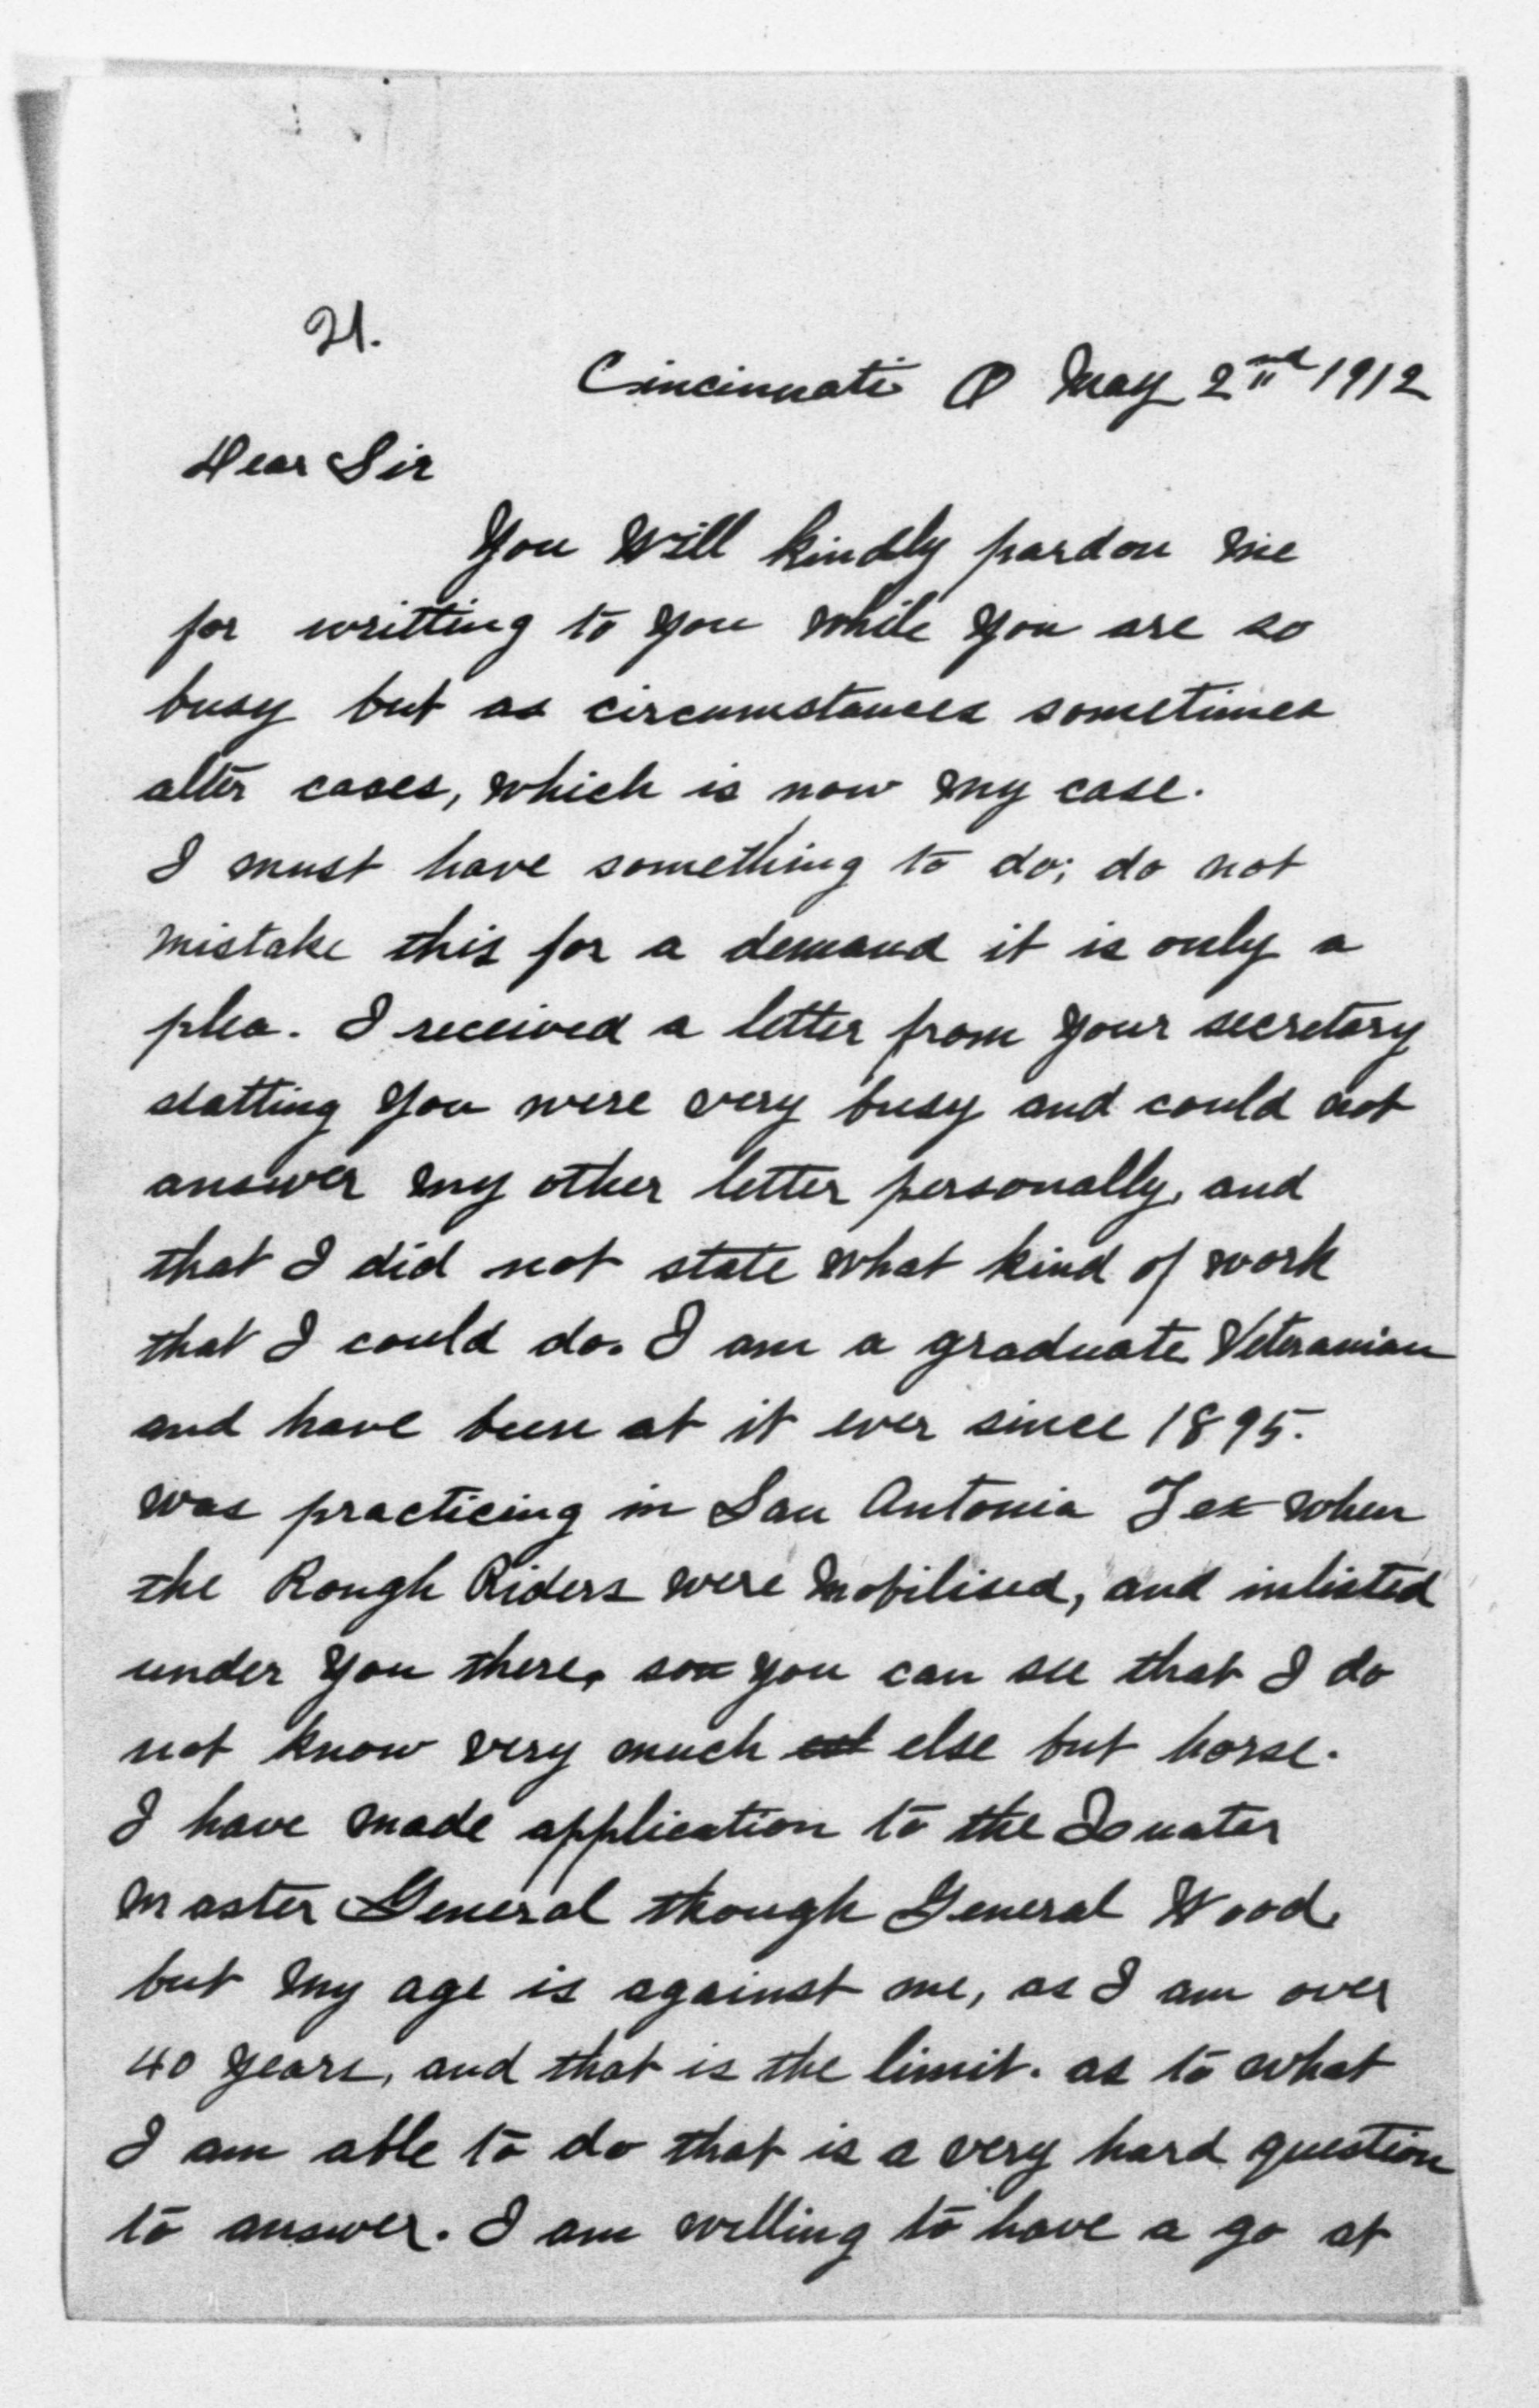 21.
Cincinnati O May 2nd 1912
Dear Sir
You Will kindly pardon me
for writting to you while you are so
busy but as circumstances sometimes
alter cases, which is now my case.
I must have something to do; do not
mistake this for a demand it is only a
plea. I received a letter from your secretary
statting you were very busy and could not
answer my other letter personally, and
that I did not state what kind of work
that I could do. I am a graduate Veteranian
and have been at it ever since 1895.
was practicing in San Antonia Tex when
the Rough Riders were mobilised, and inlisted
under you there, so you can see that I do
not know very much else but horse.
I have made application to the
Master General though General Wood,
but my age is against me, as I am over
40 years, and that is the limit. as to what
I am able to do that is a very hard question
to answer. I am willing to have a go at